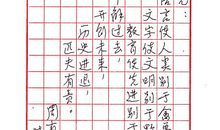 语言使人类别于禽
文字使文明别于野
教育使先进别于
了解过去
开创未来
历史进退
匹夫有责
周有